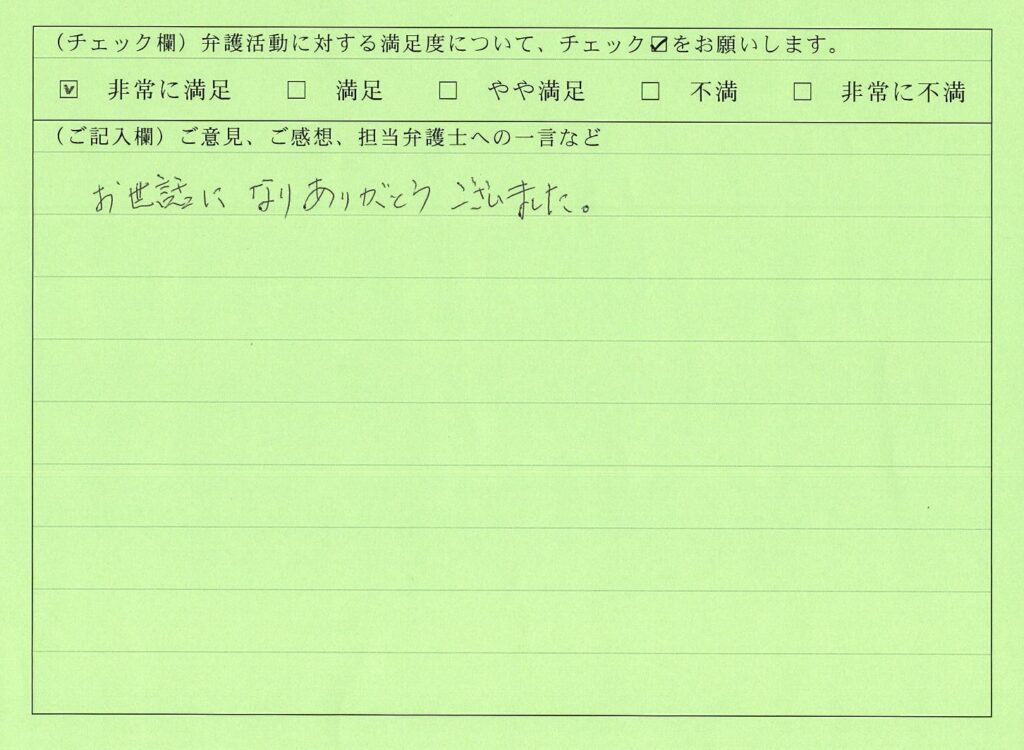 (チェック欄) 弁護活動に対する満足度について、チェック☑をお願いします。
☑ 非常に満足 □ 満足 □ やや満足 □ 不満 □ 非常に不満
(ご記入欄) ご意見、ご感想、担当弁護士への一言など
お世話に なりありがとう ございました。